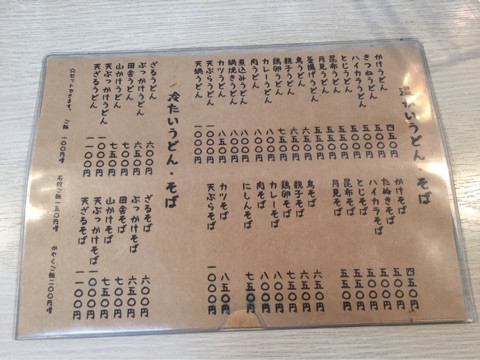 温たいうどん・そば
かけうどん 四五〇円
きつねうどん 五五〇円
ハイカラうどん 五五〇円
とじうどん 五五〇円
昆布うどん 五五〇円
月見うどん 五五〇円
釜揚げうどん 五五〇円
鳥うどん 六五〇円
親子うどん 六五〇円
鶏卵うどん 七五〇円
カレーうどん 八〇〇円
肉うどん 八〇〇円
煮込みうどん 八〇〇円
鍋焼きうどん
カツうどん 八五〇円
天ぷらうどん 一〇〇〇円
天鍋うどん
かけそば 四五〇円
たぬきそば 五五〇円
ハイカラそば 五五〇円
とじそば 五五〇円
昆布そば 五五〇円
月見そば 五五〇円
鳥そば 六五〇円
親子そば 六五〇円
鶏卵そば 七五〇円
カレーそば 八〇〇円
肉そば 八〇〇円
にしんそば 七五〇円
カツそば 八五〇円
天ぷらそば 一〇〇〇円
冷たいうどん・そば
ざるうどん 六〇〇円
ぶっかけうどん 六五〇円
田舎うどん 七〇〇円
山かけうどん 七五〇円
天ぶっかけうどん 一一〇〇円
天ざるうどん 一一〇〇円
ざるそば 六〇〇円
ぶっかけそば 六五〇円
田舎そば 七〇〇円
山かけそば 七五〇円
天ぶっかけそば 一一〇〇円
天ざるそば 一一〇〇円
セットできます。 ご飯 一〇〇円増 一五〇円増 かやくご飯二〇〇円増